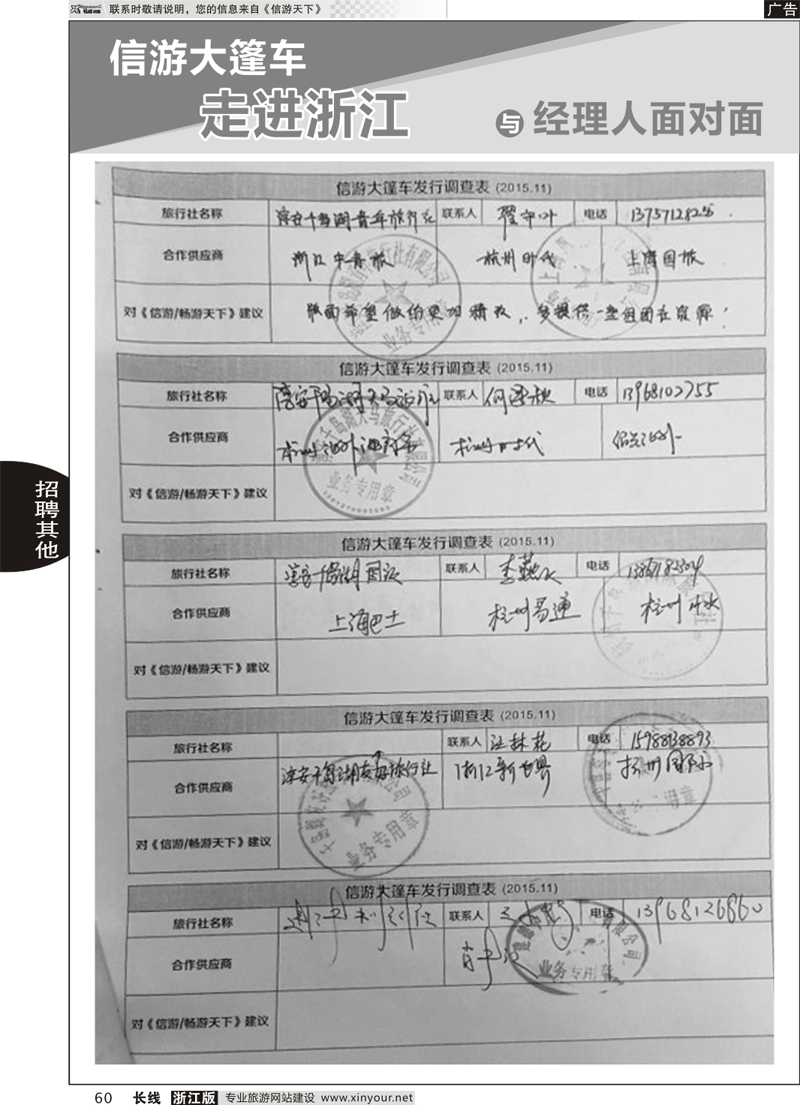 联系时敬请说明，您的信息来自《信游天下》
广告
信游大篷车
走进浙江 与 经理人面对面
招聘其他
信游大篷车发行调查表 (2015.11)
旅行社名称 淳安千岛湖青年旅行社 联系人 电话
合作供应商 浙江中青旅 杭州时代 上海国旅
对《信游/畅游天下》建议 版面希望做的更加精致，多提供一些组团社资源！
业务专用章
信游大篷车发行调查表 (2015.11)
旅行社名称 淳安千岛湖天马旅行社 联系人 电话 13968102755
合作供应商 杭州时代
对《信游/畅游天下》建议
业务专用章
信游大篷车发行调查表 (2015.11)
旅行社名称 联系人 电话
合作供应商 上海巴士 杭州易通 杭州
对《信游/畅游天下》建议
信游大篷车发行调查表 (2015.11)
旅行社名称 联系人 汪林花 电话 15988138893
合作供应商 淳安千岛湖友好旅行社 浙江新世界 杭州国际
对《信游/畅游天下》建议
业务专用章
信游大篷车发行调查表 (2015.11)
旅行社名称 联系人 电话 13968126860
合作供应商
对《信游/畅游天下》建议
业务专用章
60 长线 浙江版 专业旅游网站建设 www.xinyour.net